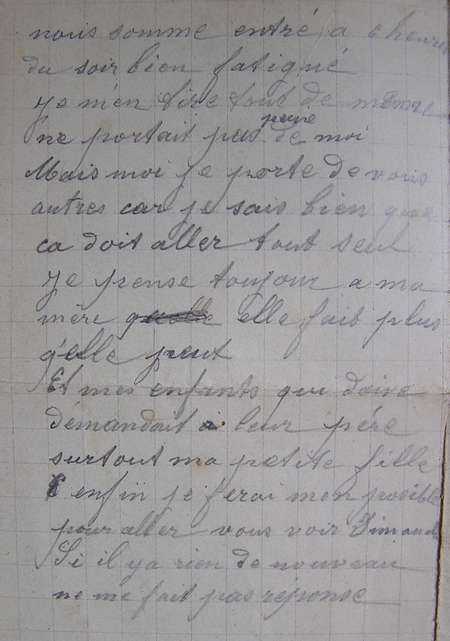 nous somme entré a 6 heures
du soir bien fatigué
je m'en tire tout de même
ne portait pas peine de moi
Mais moi je porte de vous
autres car je sais bien que
ca doit aller tout seul
je pense toujour a ma
mère elle fait plus
q'elle peut
Et mes enfants qui doive
demandait a leur pére
surtout ma petite fille
enfin je ferai mon possible
pour aller vous voir Dimanche
Si il ya rien de nouveau
ne me fait pas reponse